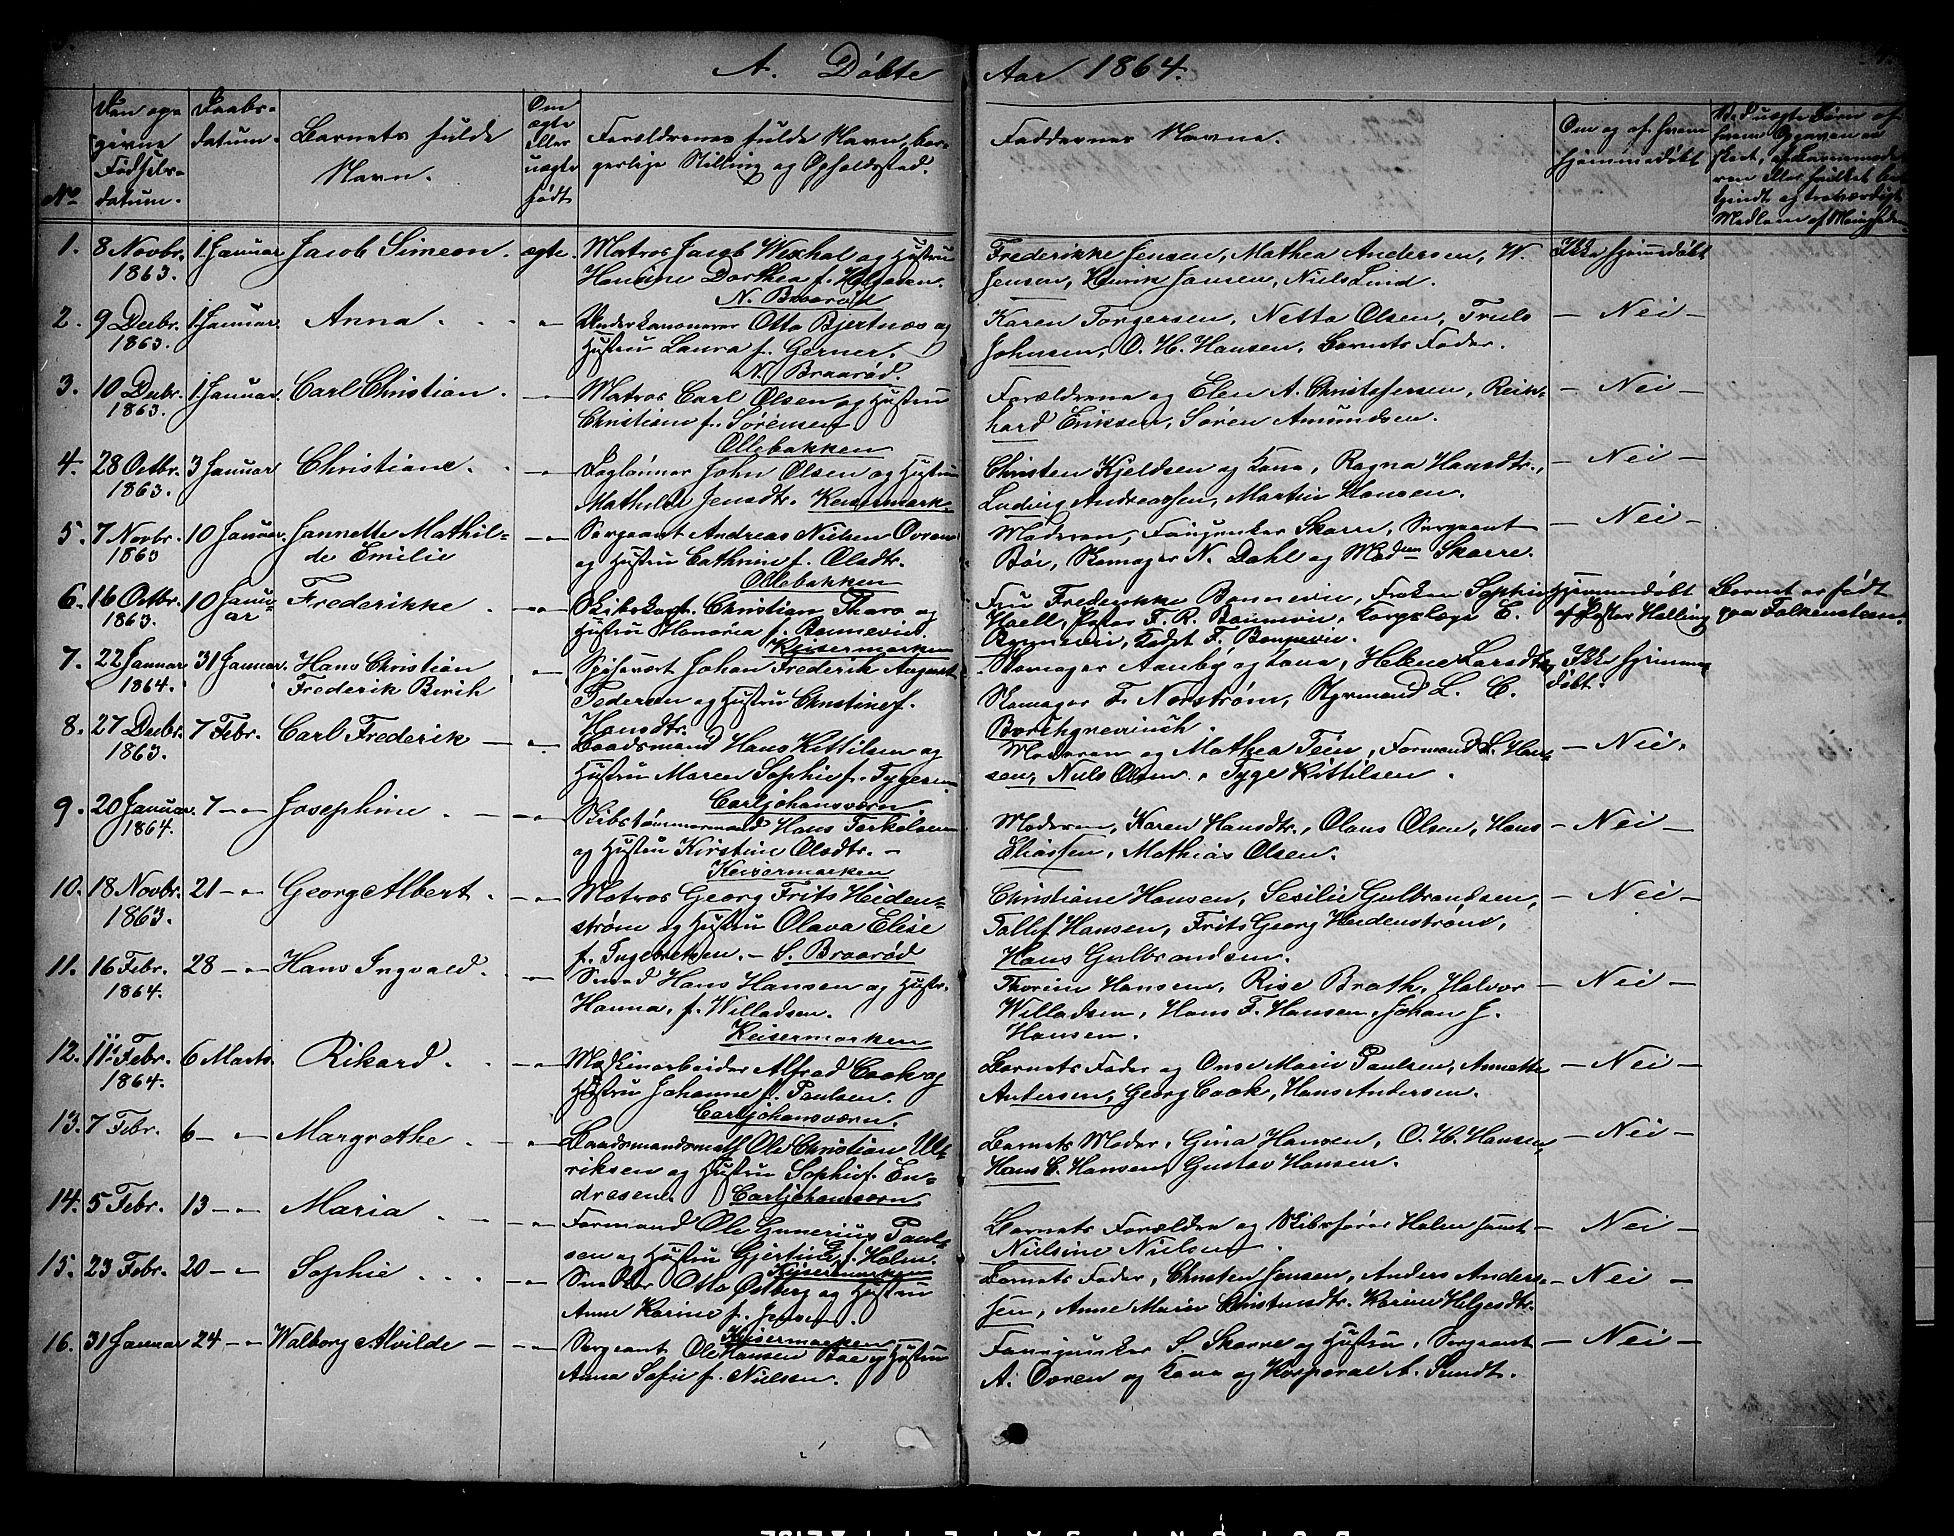 A. Døbte Aar 1864.
No
Den opgivne Fødselsdatum.
Daabsdatum.
Barnets fulde Navn.
Om ægte eller uægte født
Forældrenes fulde Navn, borgerlige Stilling og Opholdssted.
Faddernes Navne.
Om og af hvem hjemmedøbt
1. 8 Novbr. 1863. 1 Januar Jacob Simeon. ægte. Matros Jacob Wexhal og Hustru
Hansine Dorthea f. Helgesen.
N. Braarød
Frederikke Jensen, Mathea Andersen, W.
Jensen, Henrik Jansen, Niels Lind.
Ikke hjemmedøbt
2. 9 Decbr. 1863. 1 Januar. Anna. Underkanoneer Otto Bjertnæs og
Hustru Laura f. Gerner.
N. Braarød.
Karen Torgersen, Netta Olsen, Truls
Johnsen, O. H. Hansen, Barnets Fader.
— Nei —
3. 10 Decbr. 1863. 1 Januar. Carl Christian. Matros Carl Olsen og Hustru
Christiane f. Sørensen
Ollebakken
Forældrene og Elen A. Christofersen, Reinhard Eriksen, Søren Amundsen.
— Nei —
4. 28 Octbr. 1863. 3 Januar Christiane. Daglønner John Olsen og Hustru
Mathilde Jensdtr. Keisermark
Christen Kjeldsen og Kone, Ragna Hansdtr.,
Ludvig Andreassen, Martin Hansen.
— Nei —
5. 7 Novbr. 1863 10 Januar. Jannette Mathilde Emilie Sergeant Andreas Nielsen Ovren
og Hustru Cathrine f. Olsdtr.
Ollebakken
Moderen, Fanejunker Skarre, Sergeant
Bøe, Skomager N. Dahl og Madm Skarre.
— Nei —
6. 16 Octbr. 1863. 10 Januar Frederikke Skibskapt. Christian Thara og
Hustru Honoria f. Bonnevie.
Keisermarken
Fru Frederikke Bonnevie, Frøken Sophie
Hoell, Pastor F. R. Bonnevie, Korpslæge E.
Bonnevie, Kadet F. Bonnevie.
Hjemmedøbt
af Pastor Halling
Barnet er født
paa Falkensteen.
7. 22 Januar 1864. 31 Januar. Hans Christian
Frederik Birch Spisevært Johan Frederik August
Pedersen og Hustru Christine f.
Hansdtr.
Skomager Aanby og Kone, Helene Larsdtr.,
Skomager F. Norstrøm, Styrmand L. C.
Borchgrevinck.
Ikke hjemmedøbt.
8. 27 Decbr. 1863. 7 Febr. Carl Frederik Baadsmand Hans Kittilsen og
Hustru Maren Sophie f. Tygesen
Carljohansværn
Moderen og Mathea Tein, Formand L. Hansen, Niels Olsen, Tyge Kittilsen.
— Nei.
9. 20 Januar 1864. 7 — Josephine Skibstømmermand Hans Terkelsen
og Hustru Kirstine Olsdtr. —
Keisermarken
Moderen, Karen Hansdtr., Olaus Olsen, Hans
Eliassen, Mathias Olsen.
— Nei —
10. 18 Novbr. 1863. 21 — Georg Albert. Matros Georg Frits Heidenstrøm og Hustru Olava Elise
f. Ingebretsen. — S. Braarød
Christiane Hansen, Sesilie Gulbrandsen,
Tollef Hansen, Frits Georg Heidenstrøm,
Hans Gulbrandsen.
— Nei —
11. 16 Febr. 1864. 28 — Hans Ingvald. Smed Hans Hansen og Hustr.
Hanna, f. Willadsen.
Keisermarken
Thorine Hansen, Rise Brath, Halvor
Willadsen, Hans F. Hansen, Johan J.
Hansen.
— Nei —
12. 11 Febr. 1864. 6 Marts. Rikard. Maskinarbeider Alfred Cook og
Hustru Johanne f. Paulsen.
Carljohansværn.
Barnets Fader og Ons Marie Paulsen, Annette
Andersen, Georg Cook, Hans Andersen.
— Nei —
13. 7 Febr. 6 — Margrethe. Baadsmandsmath Ole Christian Ulriksen og Hustru Sophie f. Endresen. Carljohansværn.
Barnets Moder, Gina Hansen, O. H. Hansen,
Hans C. Hansen, Gustav Hansen.
— Nei —
14. 5 Febr. 13 — Maria. Formand Ole Gunerius Paulsen og Hustru Gjertine f. Holm.
Keisermarken
Barnets Forældre og Skibsfører Holm samt
Nielsine Nielsen.
— Nei —
15. 23 Febr. 20 — Sophie Snedker Otto Østberg og Hustru
Anne Karine f. Jensen.
Keisermarken
Barnets Fader, Christen Jensen, Anders Andersen, Anne Marie Christensdtr. Karine Helgesdtr.
— Nei —
16. 31 Januar 24 — Walborg Alvilde Sergeant Ole Hansen Bøe og Hustru
Anna Sofie f. Nielsen.
Fanejunker S. Skarre og Hustru, Sergeant
A. Ovren og Kone og Korporal A. Sundt.
— Nei —